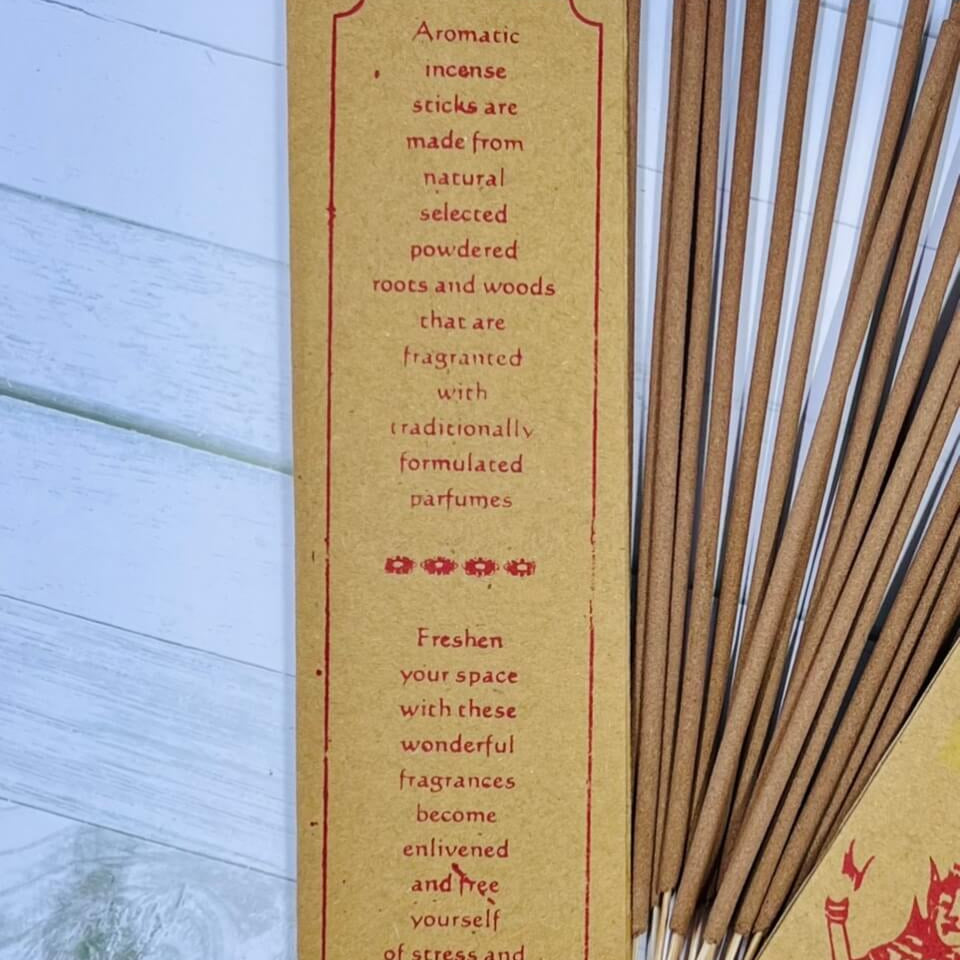 Aromatic
incense
sticks are
made from
natural
selected
powdered
roots and woods
that are
fragranted
with
traditionally
formulated
parfumes
Freshen
your space
with these
wonderful
fragrances
become
enlivened
and free
yourself
of stress and